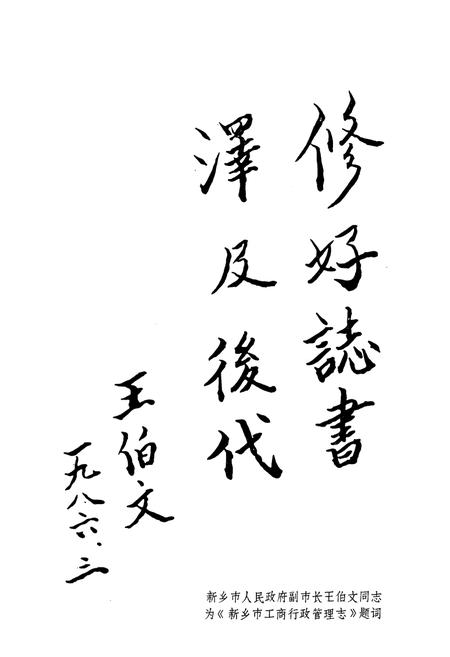 修好誌書
澤及後代
王伯文
一九八六.三
新乡市人民政府副市长王伯文同志
为《新乡市工商行政管理志》题词